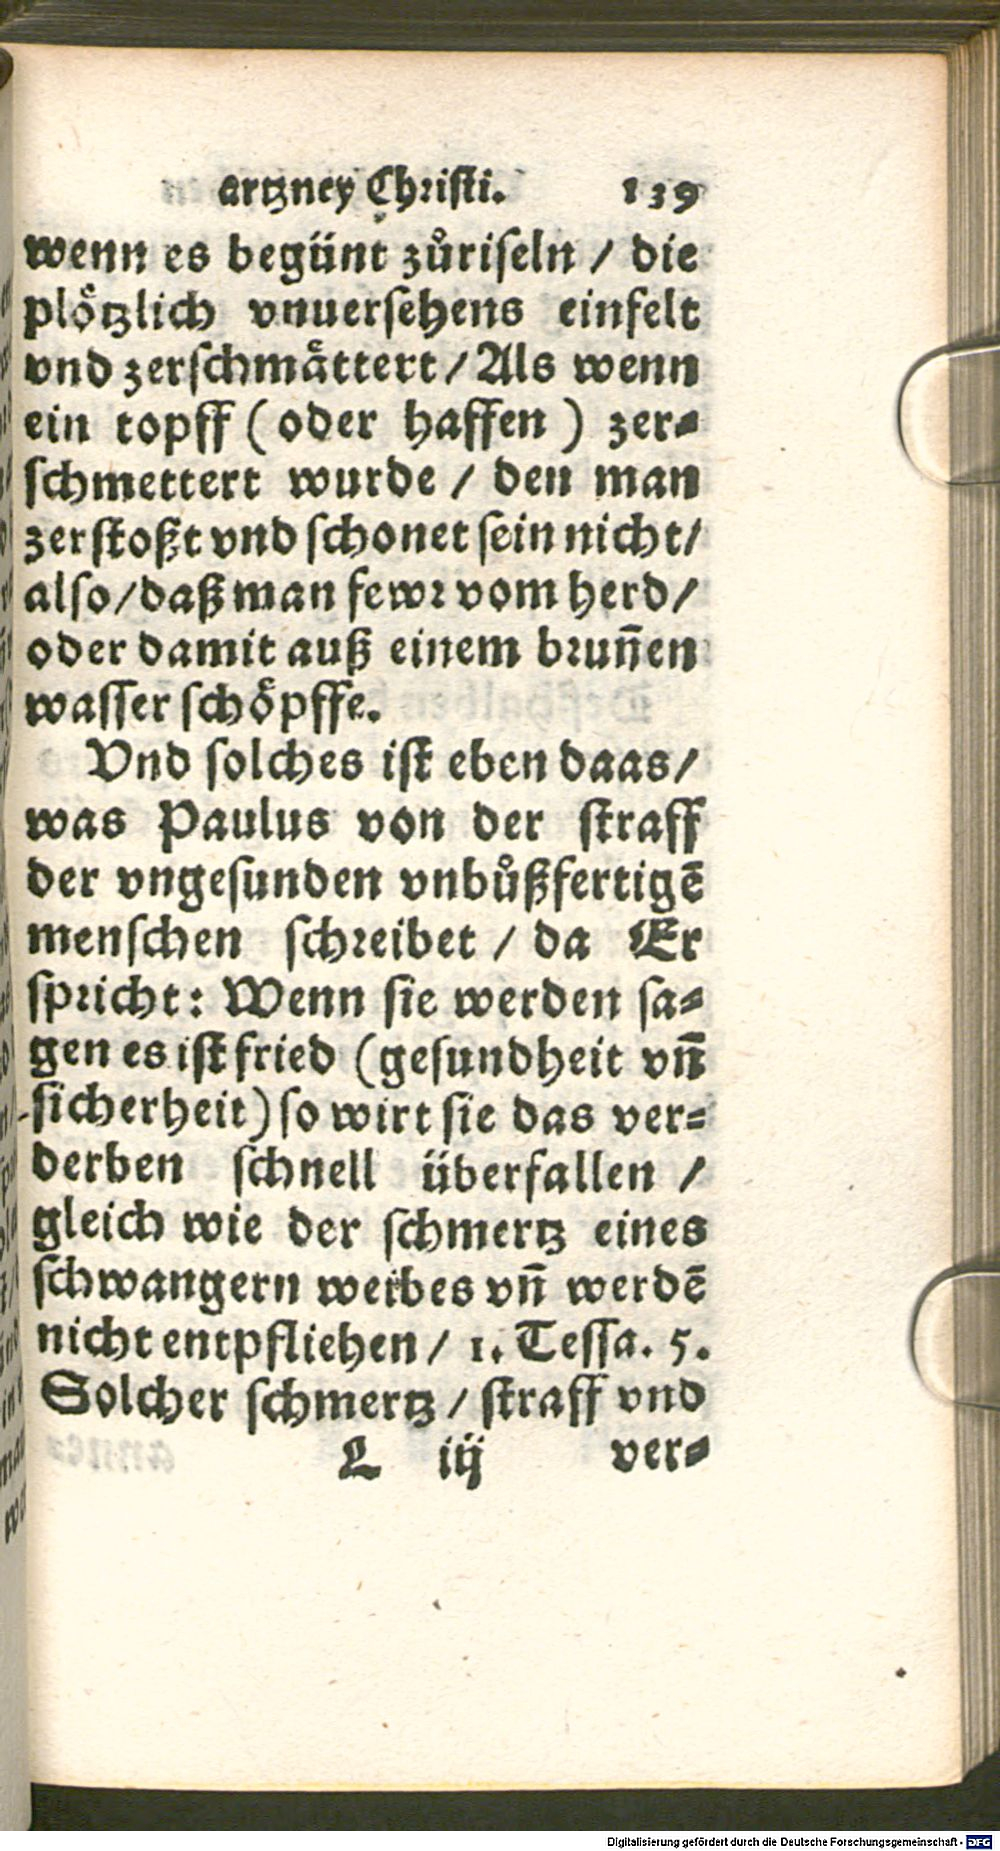 artzney Christi. 139
wenn es begünt zůriseln / die
plötzlich vnuersehens einfelt
vnd zerschmåttert / Als wenn
ein topff ( oder haffen ) zer-
schmettert wurde / den man
zerstoßt vnd schonet sein nicht /
also / daß man fewr vom herd /
oder damit auß einem brun̄en
wasser schöpffe.
Vnd solches ist eben daas /
was Paulus von der straff
der vngesunden vnbůßfertigē
menschen schreibet / da Er
spricht: Wenn sie werden sa-
gen es ist fried (gesundheit vn̄
sicherheit) so wirt sie das ver-
derben schnell überfallen /
gleich wie der schmertz eines
schwangern weibes vn̄ werdē
nicht entpfliehen / 1. Tessa. 5.
Solcher schmertz / straff vnd
L iij ver-
Digitalisierung gefördert durch die Deutsche Forschungsgemeinschaft - DFG